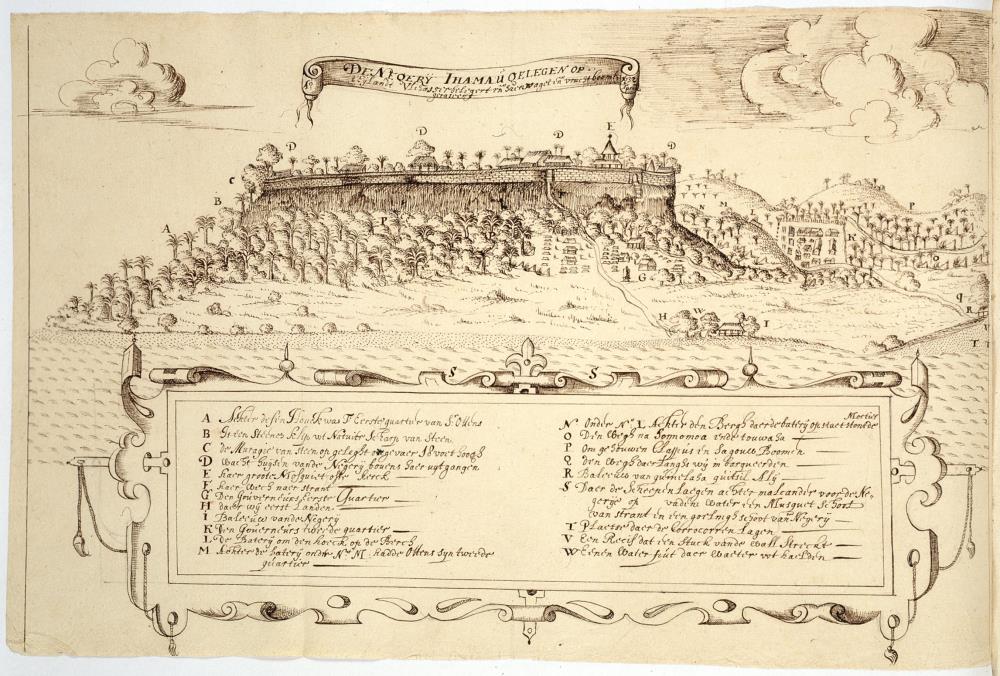 DE NEGERŸ IHAMAŬ GELEGEN OP
D
D
D
E
D
C
B
A
P
N
M
L
P
K
O
G
Q
R
H
W
I
V
T
S
S
A Achter desen Houck was 'T Eerste quartier van Sr. Ottens
B Is een Steenes klip wt Natuire scharp van Steen
C de Muragie van Steen op geleght ongevaer 18 voet hoogh
D Wacht huysen vande Negerÿ bovens haer uyt gangen
E haer groote Mosquiet ofte kerck
F haer Wech naer strant
G Den Gouverneurs Eerste Quartier
H daer wÿ eerst Landen
I Baleeuw vande Negerÿ
K Den Gouverneurs tweede quartier
L de Baterÿ om den hoeck op de Berch
M Achter de baterÿ onder No. M. hadde Ottens sÿn tweede
quartier
Mortier
N Onder No. L Achter den Bergh daer de baterÿ op staet stont de
O Den Wegh na
P Om gehouwen Clappus en Sagouw Boomen
Q den Wegh daer langhs wÿ in barqueerden
R Baleeuw van
S Daer de Scheepen Laegen achter malcander voor de Ne-
gerÿe op vadem water een Musquet schoot
van strant en een goelingh schoot van Negerÿ
T Plaetse daer de Corrocorren Lagen
V Een Recif dat een Stuck vande wall Streckt
W Eenen Water put daer Waeter wt haelden